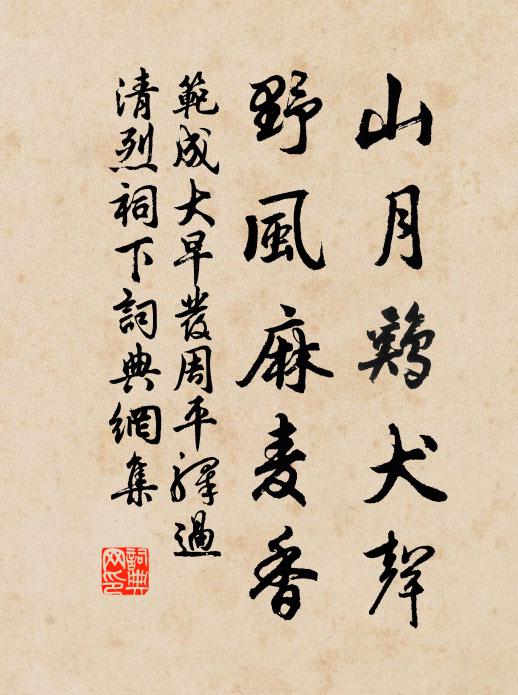 山月鷄犬聲
野風麻麦香
範成大早發周平驛過
清烈祠下詞典網集
詞典
网印